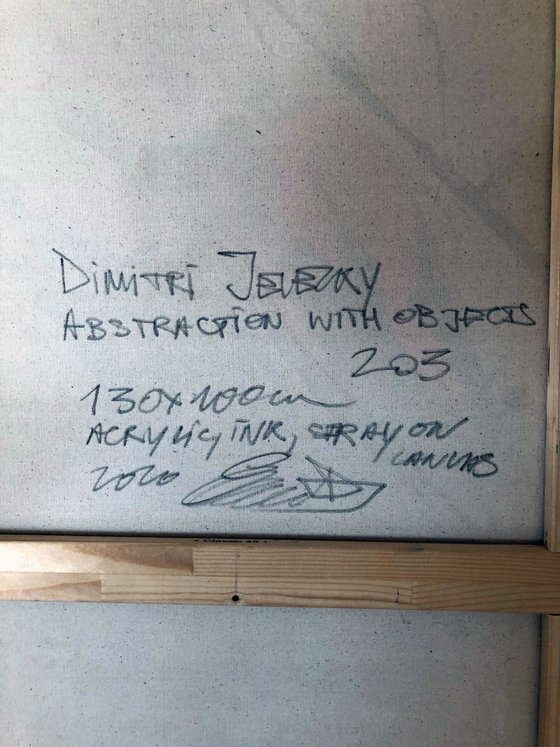 DIMITRI JELEZKY
ABSTRACTION WITH OBJECTS
203
130x100cm
ACRYLIC, INK, SPRAY ON
CANVAS
2020
+ Classic 45 +